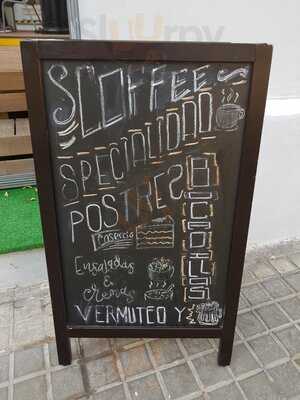 SLOFFEE
ESPECIALIDAD
POSTRES
BOCADILLOS
Ensaladas
&
Cremas
VERMUTEO Y